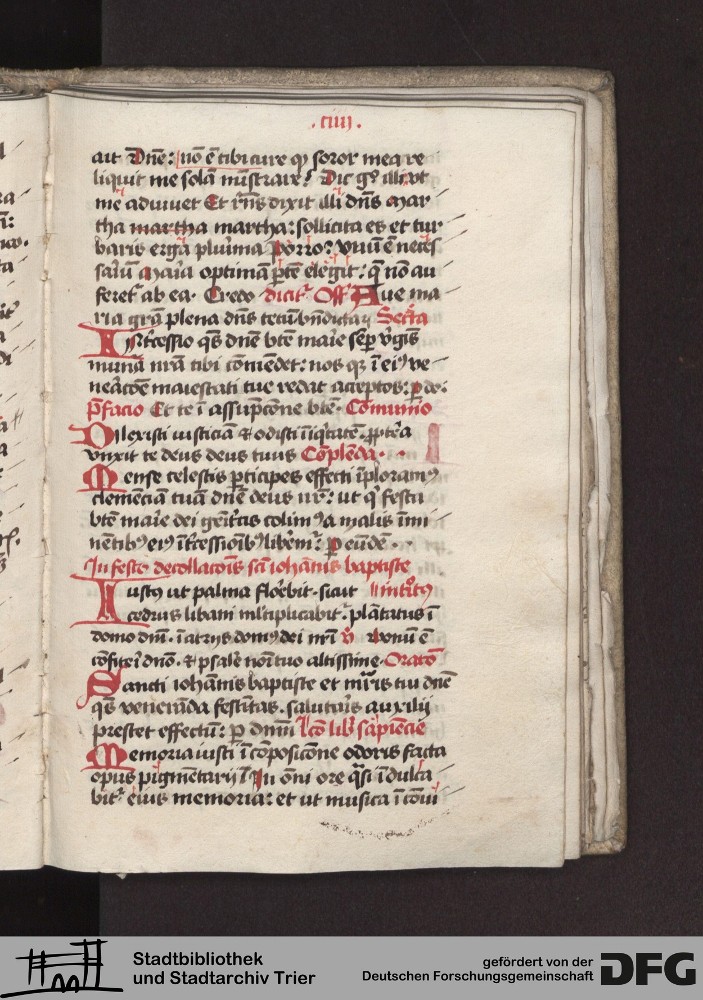 .ciiij.
ait Dn̄e: nō ē tibi cure q̄ soror mea re
liquit me solā mīstrare? Dic gͦ illi vt
me adiuvet Et rn̄s dixit illi dn̄s Mar
tha martha martha: sollicita es et tur
baris ergā plurīma Porro? vnū ē neces
sariū Maria optimā ꝑtē elegit: q̄ nō au
feret᷑ ab ea. Credo dicit᷑ Off Aue ma
ria grā plena dn̄s tecū bn̄dicta Secreta
Int̄cessio qs̄ dn̄e btē marie semꝑ v̄gīs
munā nrā tibi cōmēdet: nos qꝫ ī eiꝰ ve
neracōe maiestati tue redat acceptos: ꝑ do:
p̄facio Et te ī assūpcōne btē. Cōmunio
Dilexisti iusticiā & odisti īiqͥtatē. ꝓptea
vnxit te deus deus tuus Cōplenda.
Mense celestis ꝑticipes effecti īploramꝰ
clemēciā tuā dn̄e deus nr̄: ut qͥ festa
btē marie dei geītͥcis colimꝰ a malis īmi
nētibꝰ eiꝰ īt̄cessionībꝰ liberemͬ: ꝑ eūdē.
In festo decollacōis scī iohānis baptiste
Iustꝰ ut palma florebit. sicut introitꝰ
cedrus libani ml̄tiplicabit᷑. plātatus ī
domo dnī. ī atrijs domꝰ dei nrī v̄ Bonū ē
cōfiteri dnō. & psalēˀ nōi tuo altissime. Oratō
Sancti iohānis baptiste et mr̄is tui dn̄e
qs̄ veneranda festītas. salutaris auxilij
prestet effectū: ꝑ dnm̄ Lc̄o libͥ sapiencie
Memoria iusti ī cōposicōne odoris facta
opus pigmētarij In om̄i ore qͣsi īdulca
bit᷑ eius memoria: et ut musica ī cōui
Stadtbibliothek
und Stadtarchiv Trier
gefördert von der
Deutschen Forschungsgemeinschaft
DFG